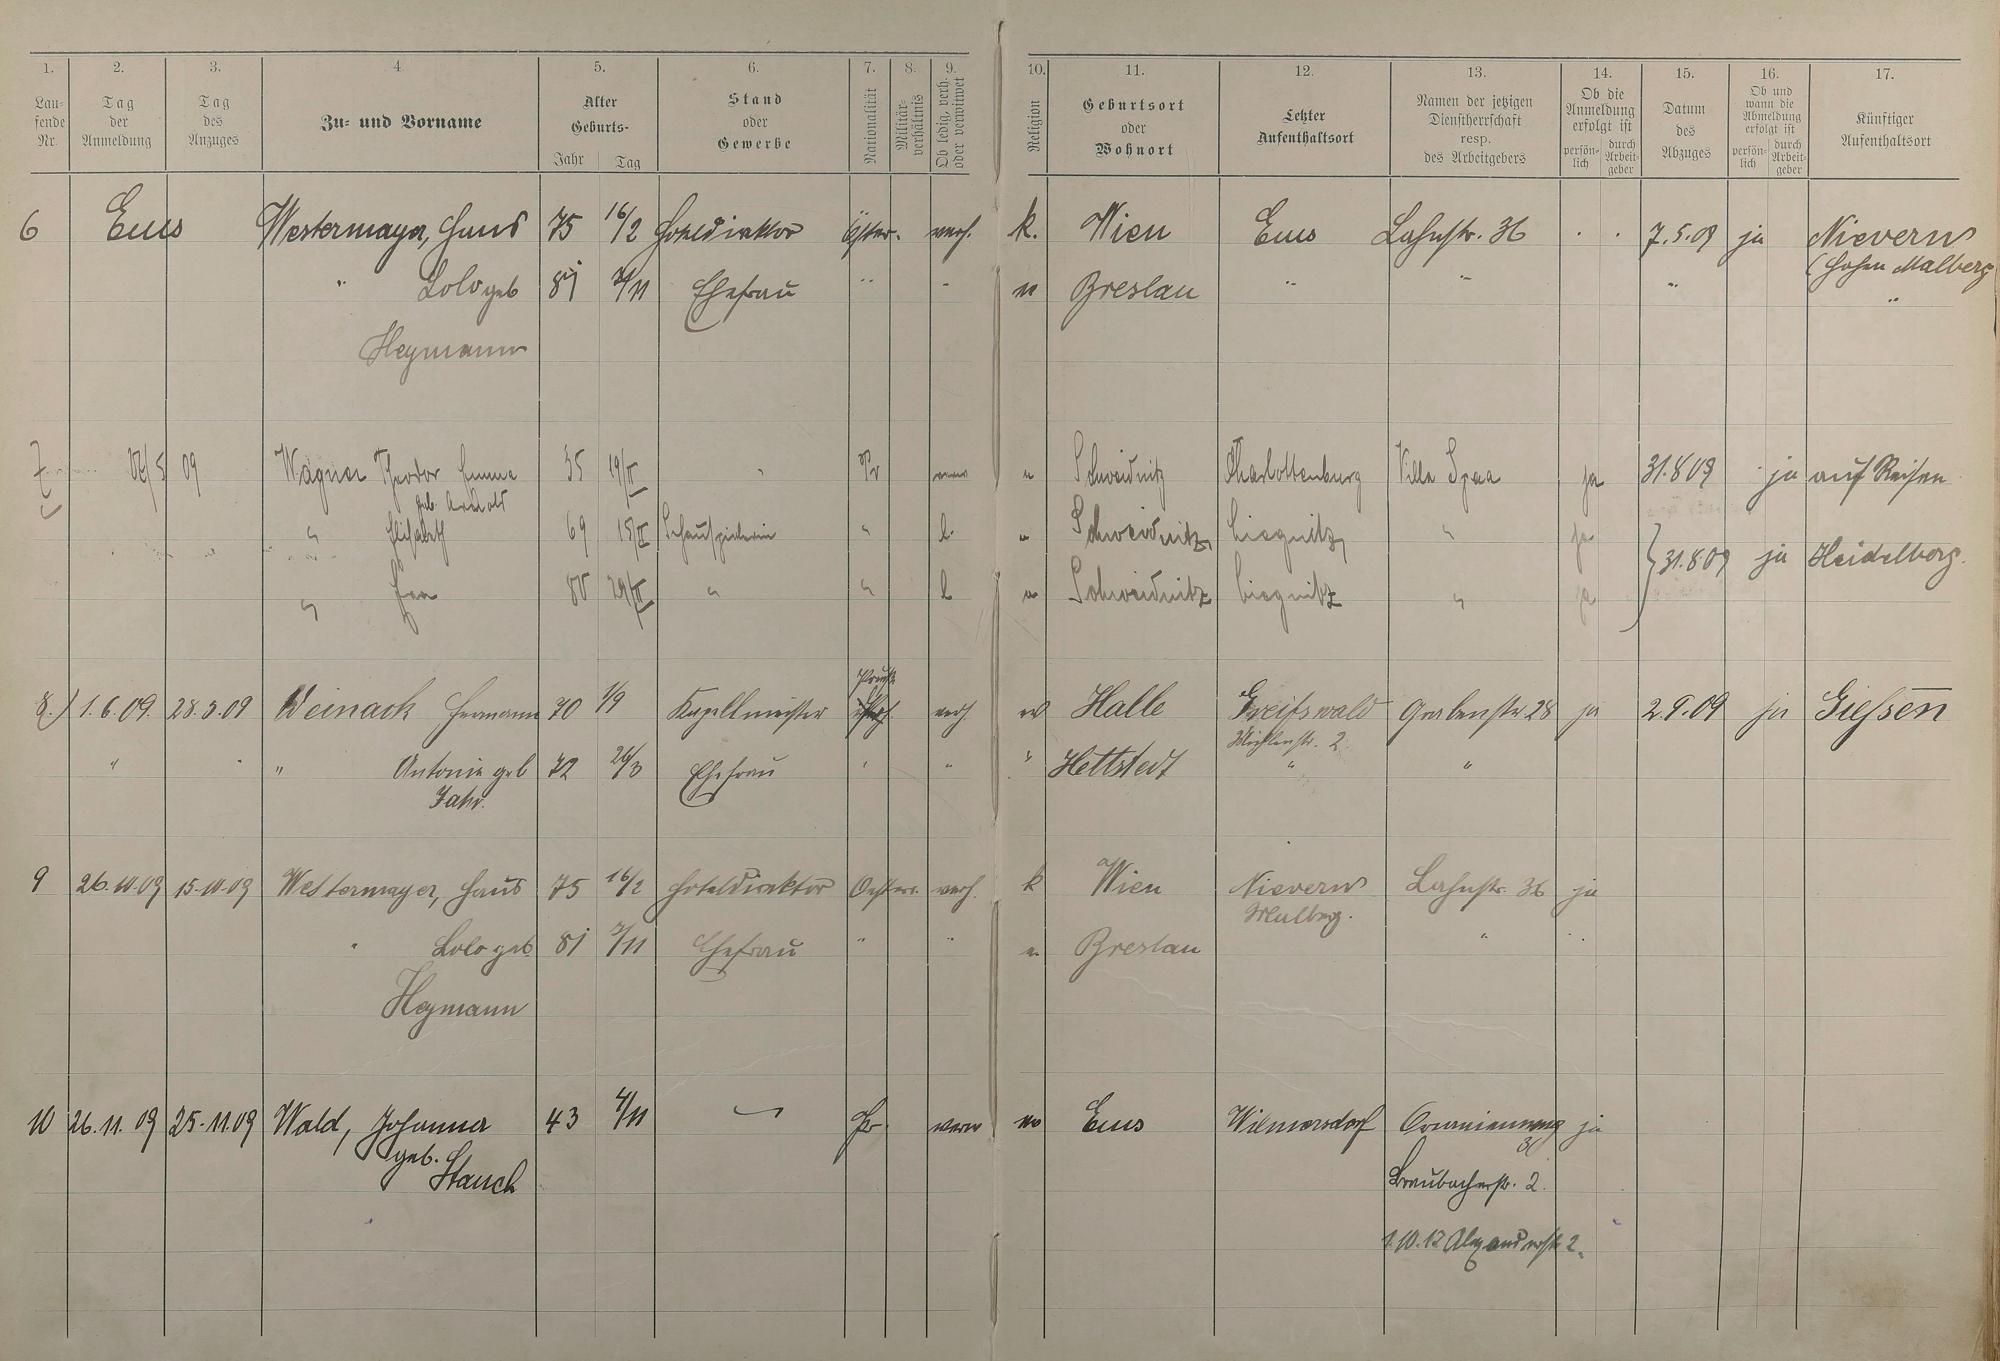 1. 2. 3. 4. 5. 6. 7. 8. 9. 10. 11. 12. 13. 14. 15. 16. 17.
Lau-
fende
Nr.
Tag
der
Anmeldung
Tag
des
Anzuges
Zu- und Vorname
Alter
Geburts-
Jahr Tag
Stand
oder
Gewerbe
Nationalität
Militär-
verhältnis
Ob ledig, verh.
oder verwitwet
Religion
Geburtsort
oder
Wohnort
Letzter
Aufenthaltsort
Namen der jetzigen
Dienstherrschaft
resp.
des Arbeitgebers
Ob die
Anmeldung
erfolgt ist
persön-
lich
durch
Arbeit-
geber
Datum
des
Abzuges
Ob und
wann die
Abmeldung
erfolgt ist
persön-
lich
durch
Arbeit-
geber
Künftiger
Aufenthaltsort
6 Ems Westermayer, Hans 75 16/2 Hoteldirektor Öster. verh. k. Wien Ems Lahnstr. 36 7.5.09 ja Nievern
(Hohen Malberg
" Lolo geb 81 7/11 Ehefrau " " Breslau " " " "
Heymann
7 09 Wagner Theodor Emma 35 19/II Pr " Schweidnitz Charlottenburg Villa Spaa ja 31.8.09 ja auf Reisen
geb. Arnold
" Elisabeth 69 15/II Schauspielerin " l. " Schweidnitz Liegnitz " ja
} 31.8.09 ja Heidelberg.
" Eva 80 29/II " " l " Schweidnitz Liegnitz " ja
8.) 1.6.09. 28.5.09 Weinack Hermann 70 1/9 Kapellmeister Preuß. verh. ev Halle Greifswald Grabenstr. 28 ja 2.9.09 ja Giessen
Mühlenstr. 2.
" " Antonie geb 72 26/3 Ehefrau " " " Hettstedt " "
Jahr.
9 26.10.09 15.10.09 Westermayer, Hans 75 16/2 Hoteldirektor Oesterr. verh. k Wien Nievern Lahnstr. 36 ja
Malberg.
" Lolo geb. 81 7/11 Ehefrau " " Breslau "
Heymann
10 26.11.09 25.11.09 Wald, Johanna 43 4/11 — Pr. verw ev Ems Wilmersdorf Oranienweg ja
geb. 30
Stauch Braubacherstr. 2.
1.10.12 Alexanderstr 2.